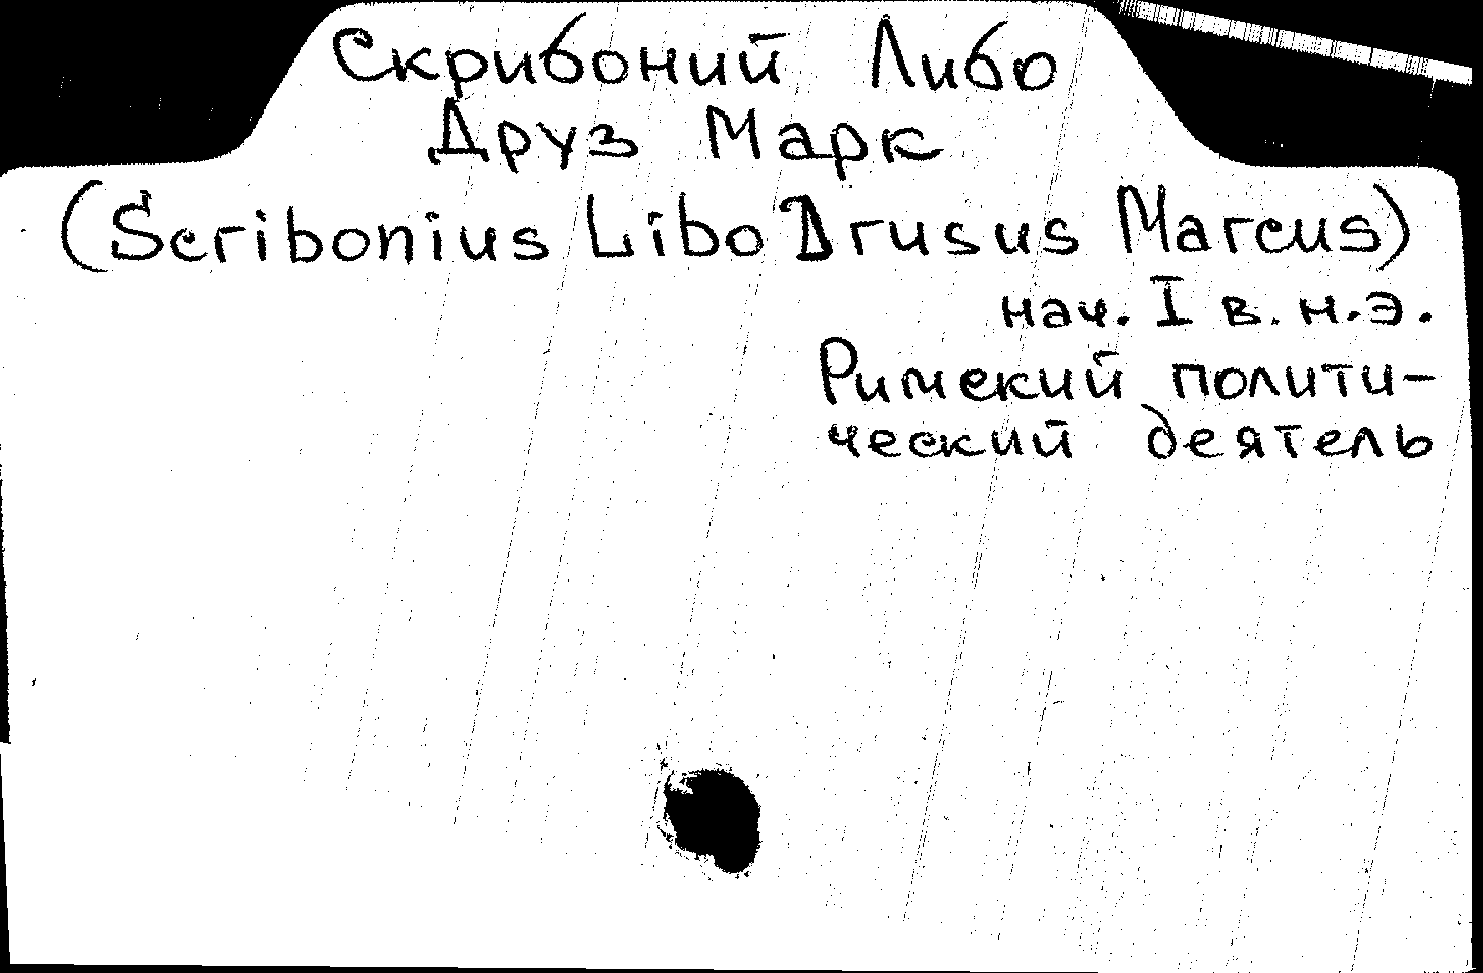 Скрибоний Либо
Друз Марк
(Scribonius Libo Drusus Marcus)
нач. I в. н.э.
Римский полити-
ческий деятель